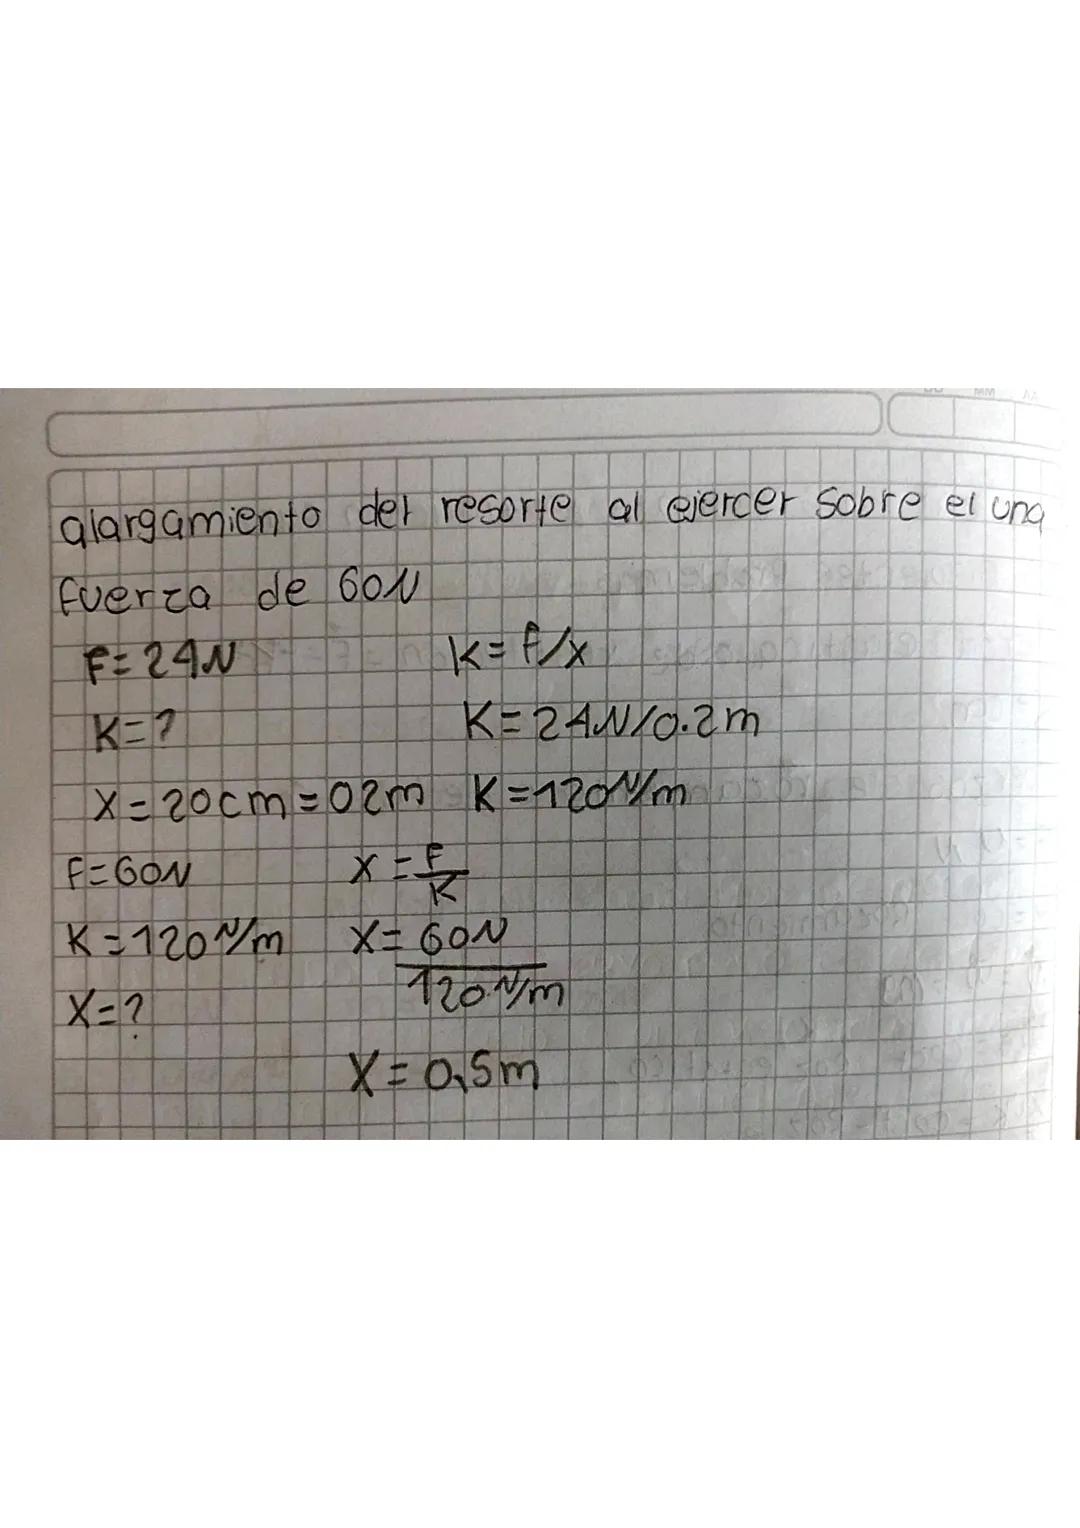 alargamiento del resorte al ejercer sobre el una
fuerza de 60N
F=24N K=f/x
K=? K=24N/0.2m
X=20cm=02m K=120N/m
F=60N X=F/K
K=120N/m X=60N/120N/m
X=?
X=0,5m